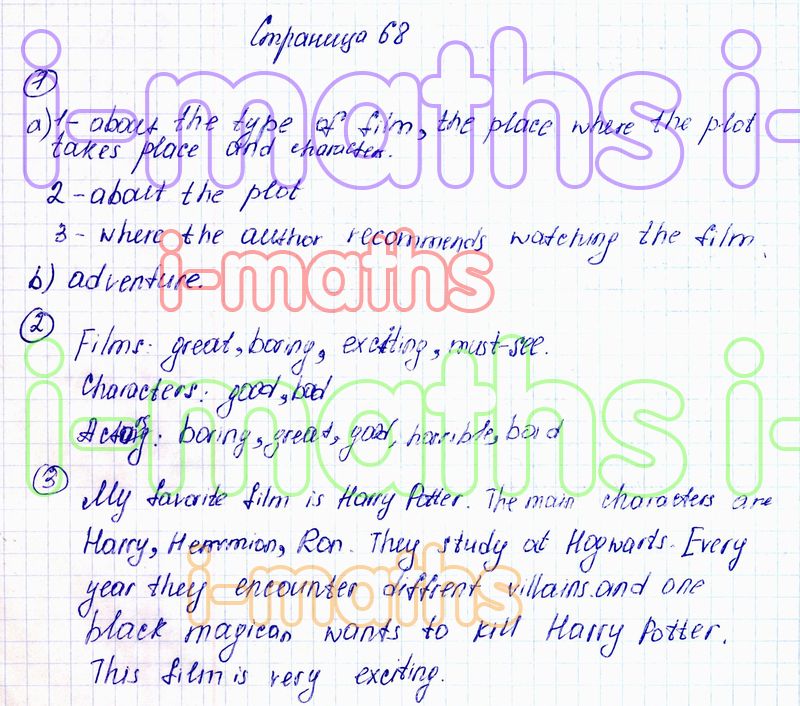 Страница 68
1
a) 1 - about the type of film, the place where the plot
takes place and characters.
2 - about the plot
3 - where the author recommends watching the film.
b) adventure.
2
Films: great, boring, exciting, must-see.
Characters: good, bad
Acting: boring, great, good, horrible, bad
3
My favorite film is Harry Potter. The main characters are
Harry, Hermmion, Ron. They study at Hogwarts. Every
year they encounter diffrent villains.and one
black magican wants to kill Harry Potter.
This film is very exciting.
i-maths i-
i-maths
i-maths i-
i-maths